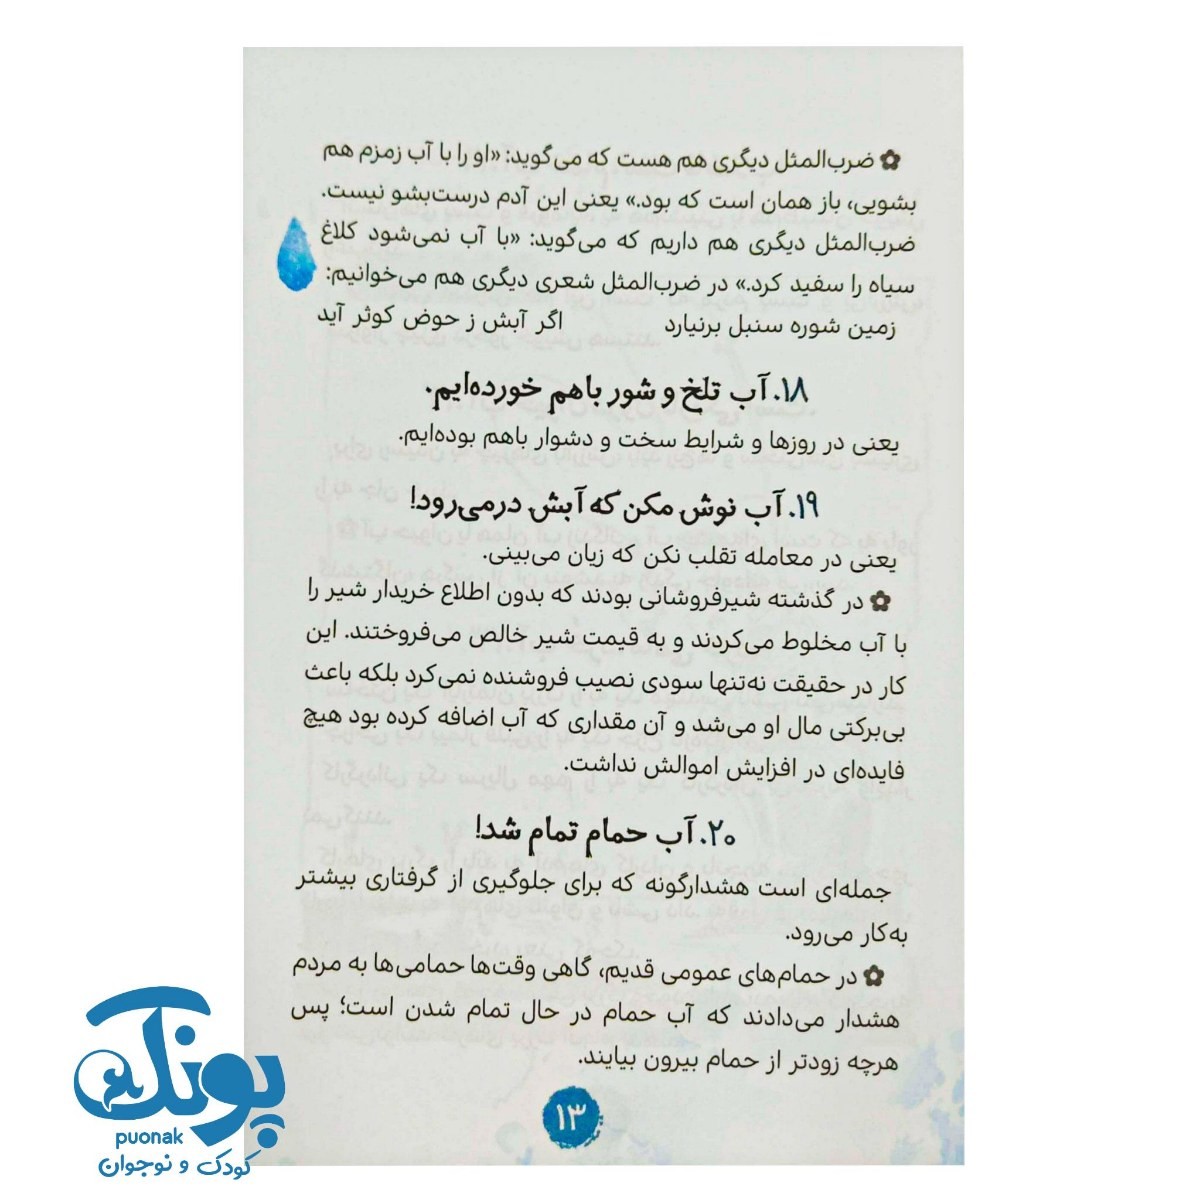 ضرب‌المثل دیگری هم هست که می‌گوید: «او را با آب زمزم هم
بشویی، باز همان است که بود.» یعنی این آدم درست‌بشو نیست.
ضرب‌المثل دیگری هم داریم که می‌گوید: «با آب نمی‌شود کلاغ
سیاه را سفید کرد.» در ضرب‌المثل شعری دیگری هم می‌خوانیم:
زمین شوره سنبل برنیارد اگر آبش ز حوض کوثر آید
۱۸. آب تلخ و شور باهم خورده‌ایم.
یعنی در روزها و شرایط سخت و دشوار باهم بوده‌ایم.
۱۹. آب نوش مکن که آبش درمی‌رود!
یعنی در معامله تقلب نکن که زیان می‌بینی.
در گذشته شیرفروشانی بودند که بدون اطلاع خریدار شیر را
با آب مخلوط می‌کردند و به قیمت شیر خالص می‌فروختند. این
کار در حقیقت نه‌تنها سودی نصیب فروشنده نمی‌کرد بلکه باعث
بی‌برکتی مال او می‌شد و آن مقداری که آب اضافه کرده بود هیچ
فایده‌ای در افزایش اموالش نداشت.
۲۰. آب حمام تمام شد!
جمله‌ای است هشدارگونه که برای جلوگیری از گرفتاری بیشتر
به‌کار می‌رود.
در حمام‌های عمومی قدیم، گاهی وقت‌ها حمامی‌ها به مردم
هشدار می‌دادند که آب حمام در حال تمام شدن است؛ پس
هرچه زودتر از حمام بیرون بیایند.
۱۳
پونک
puonak
کودک و نوجوان